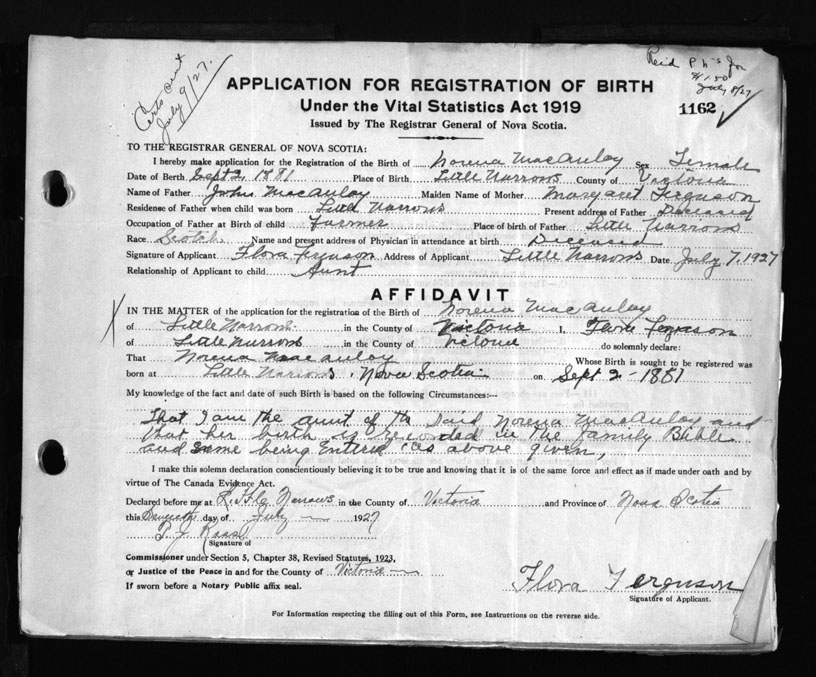 Certs sent
July 9/27.
July 8/27
$1.50
APPLICATION FOR REGISTRATION OF BIRTH
Under the Vital Statistics Act 1919
1162
Issued by The Registrar General of Nova Scotia.
TO THE REGISTRAR GENERAL OF NOVA SCOTIA:
I hereby make application for the Registration of the Birth of Norena MacAulay Sex Female
Date of Birth Sept 2, 1881 Place of Birth Little Narrows County of Victoria
Name of Father John MacAulay Maiden Name of Mother Margaret Ferguson
Residense of Father when child was born Little Narrows Present address of Father Deceased
Occupation of Father at Birth of child Farmer Place of birth of Father Little Narrows
Race Scotch Name and present address of Physician in attendance at birth Deceased
Signature of Applicant Flora Ferguson Address of Applicant Little Narrows Date July 7, 1927
Relationship of Applicant to child Aunt
AFFIDAVIT
IN THE MATTER of the application for the registration of the Birth of Norena MacAulay
of Little Narrows in the County of Victoria I, Flora Ferguson
of Little Narrows in the County of Victoria do solemnly declare:
That Norena MacAulay Whose Birth is sought to be registered was
born at Little Narrows, Nova Scotia on Sept 2 - 1881
My knowledge of the fact and date of such Birth is based on the following Circumstances:—
That I am the aunt of the said Norena MacAulay and
that her birth is recorded in the family Bible
and same being Entered as above given,
I make this solemn declaration conscientiously believing it to be true and knowing that it is of the same force and effect as if made under oath and by
virtue of The Canada Evidence Act.
Declared before me at Little Narrows in the County of Victoria and Province of Nova Scotia
this Seventh day of July 1927
Signature of
Commissioner under Section 5, Chapter 38, Revised Statutes, 1923,
or Justice of the Peace in and for the County of Victoria
If sworn before a Notary Public affix seal.
Flora Ferguson
Signature of Applicant.
For Information respecting the filling out of this Form, see Instructions on the reverse side.